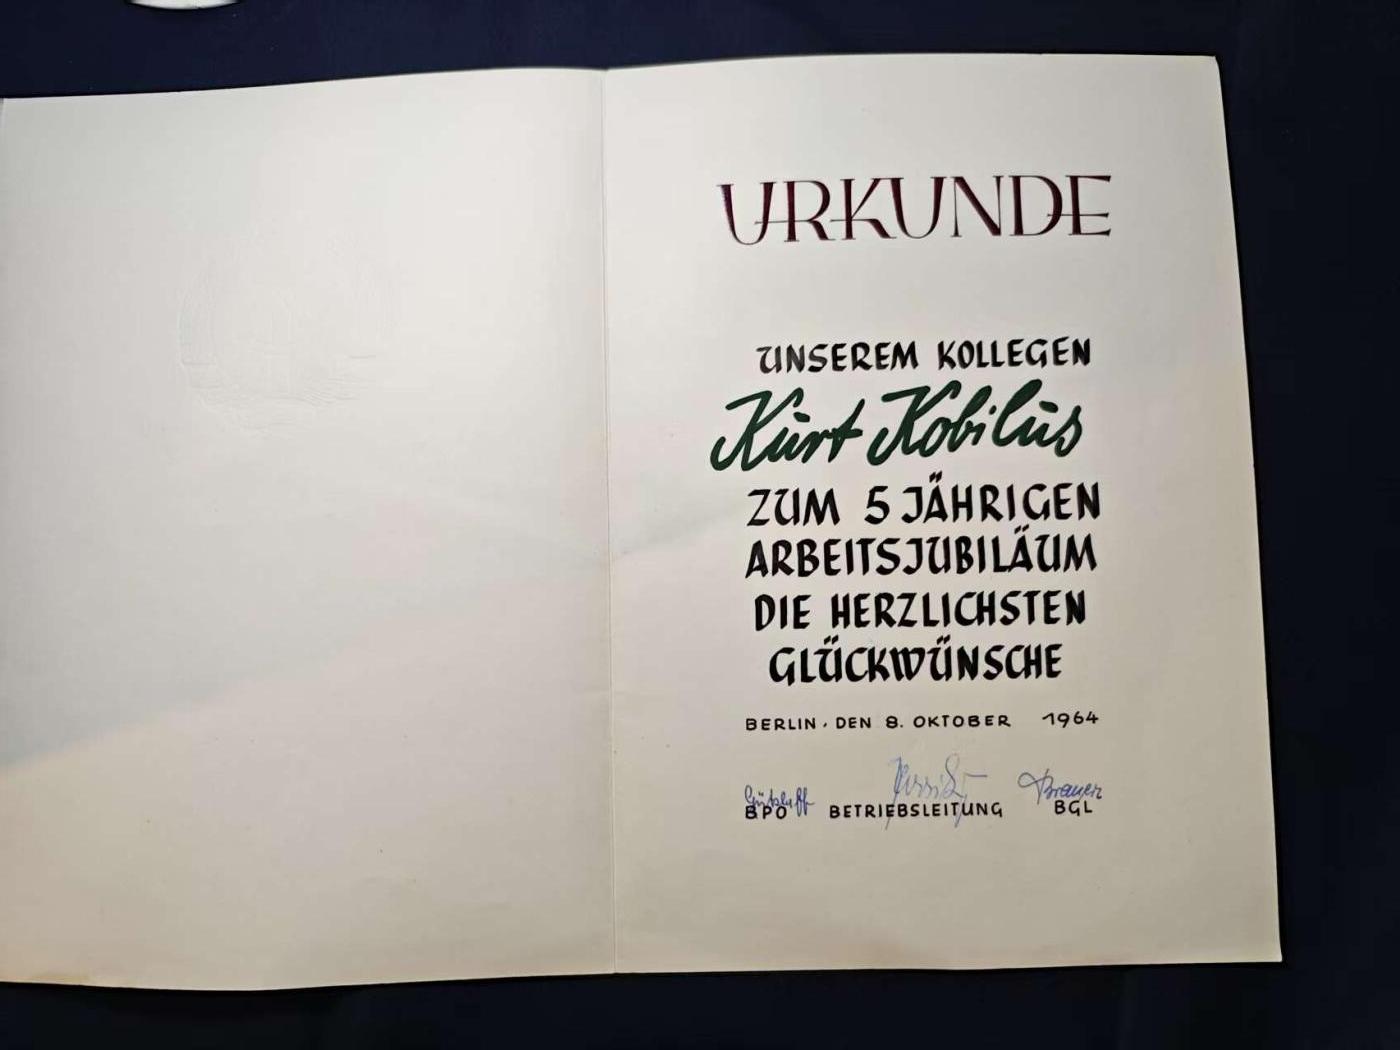 URKUNDE
UNSEREM KOLLEGEN
Kurt Kobilus
ZUM 5 JÄHRIGEN
ARBEITSJUBILÄUM
DIE HERZLICHSTEN
GLÜCKWÜNSCHE
BERLIN, DEN 8. OKTOBER 1964
BPO BETRIEBSLEITUNG BGL